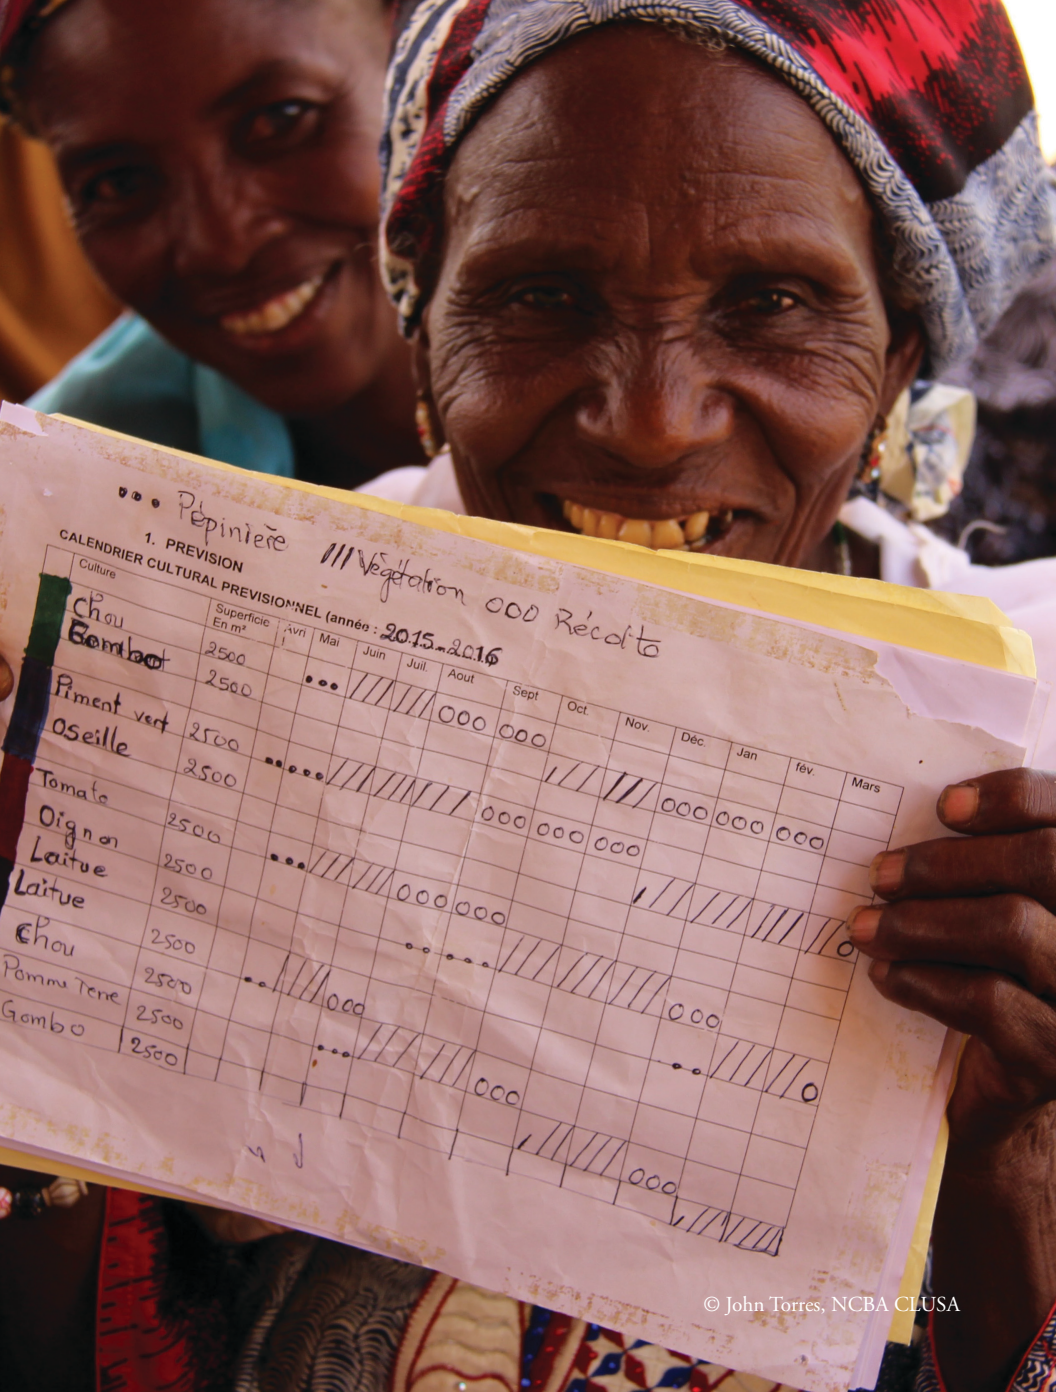 ••• Pépinière /// Végétation 000 Récolte
1. PREVISION
CALENDRIER CULTURAL PREVISIONNEL (année : 2015-2016
Culture Superficie En m² Avri l Mai Juin Juil. Aout Sept Oct. Nov. Déc. Jan fév. Mars
Chou 2500
Gombo 2500
Piment vert 2500
Oseille 2500
Tomate 2500
Oignon 2500
Laitue 2500
Laitue 2500
Chou 2500
Pomme Terre 2500
Gombo 2500
© John Torres, NCBA CLUSA